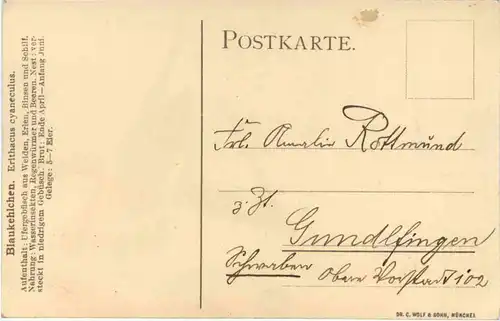 Blaukehlchen. Erithacus cyaneculus.
Aufenthalt: Ufergebüsch aus Weiden, Erlen, Binsen und Schilf.
Nahrung: Wasserinsekten, Regenwürmer und Beeren. Nest: ver-
steckt in niedrigem Gebüsch. Brut: Ende April—Anfang Juni.
Gelege: 5—7 Eier.
POSTKARTE.
Frl. Amalie Rottmund
z. Zt.
Gundlfingen
Schwaben Obere Vorstadt 102
DR. C. WOLF & SOHN, MÜNCHEN